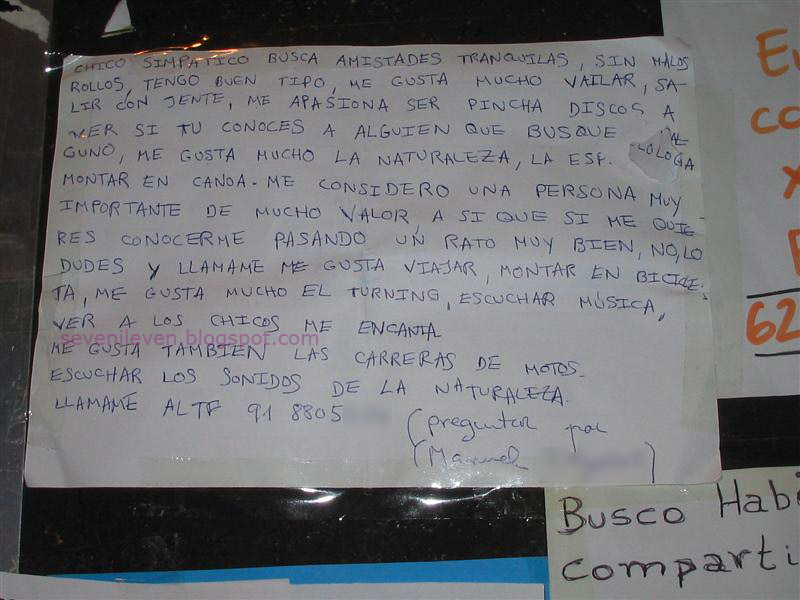 CHICO SIMPATICO BUSCA AMISTADES TRANQUILAS, SIN MALOS
ROLLOS, TENGO BUEN TIPO, ME GUSTA MUCHO VAILAR, SA-
LIR CON JENTE, ME APASIONA SER PINCHA DISCOS A
VER SI TU CONOCES A ALGUIEN QUE BUSQUE AL
GUNO, ME GUSTA MUCHO LA NATURALEZA, LA ESP. LOLOGA
MONTAR EN CANOA. ME CONSIDERO UNA PERSONA MUY
IMPORTANTE DE MUCHO VALOR, A SI QUE SI ME QUIE
RES CONOCERME PASANDO UN RATO MUY BIEN, NO, LO
DUDES Y LLAMAME ME GUSTA VIAJAR, MONTAR EN BICICLE-
TA, ME GUSTA MUCHO EL TURNING, ESCUCHAR MÚSICA,
VER A LOS CHICOS ME ENCANTA
sevenileven.blogspot.com
ME GUSTA TAMBIEN LAS CARRERAS DE MOTOS.
ESCUCHAR LOS SONIDOS DE LA NATURALEZA.
LLAMAME AL TF 91 8805
(preguntar por
(Manuel )
Busco Habi
comparti
62